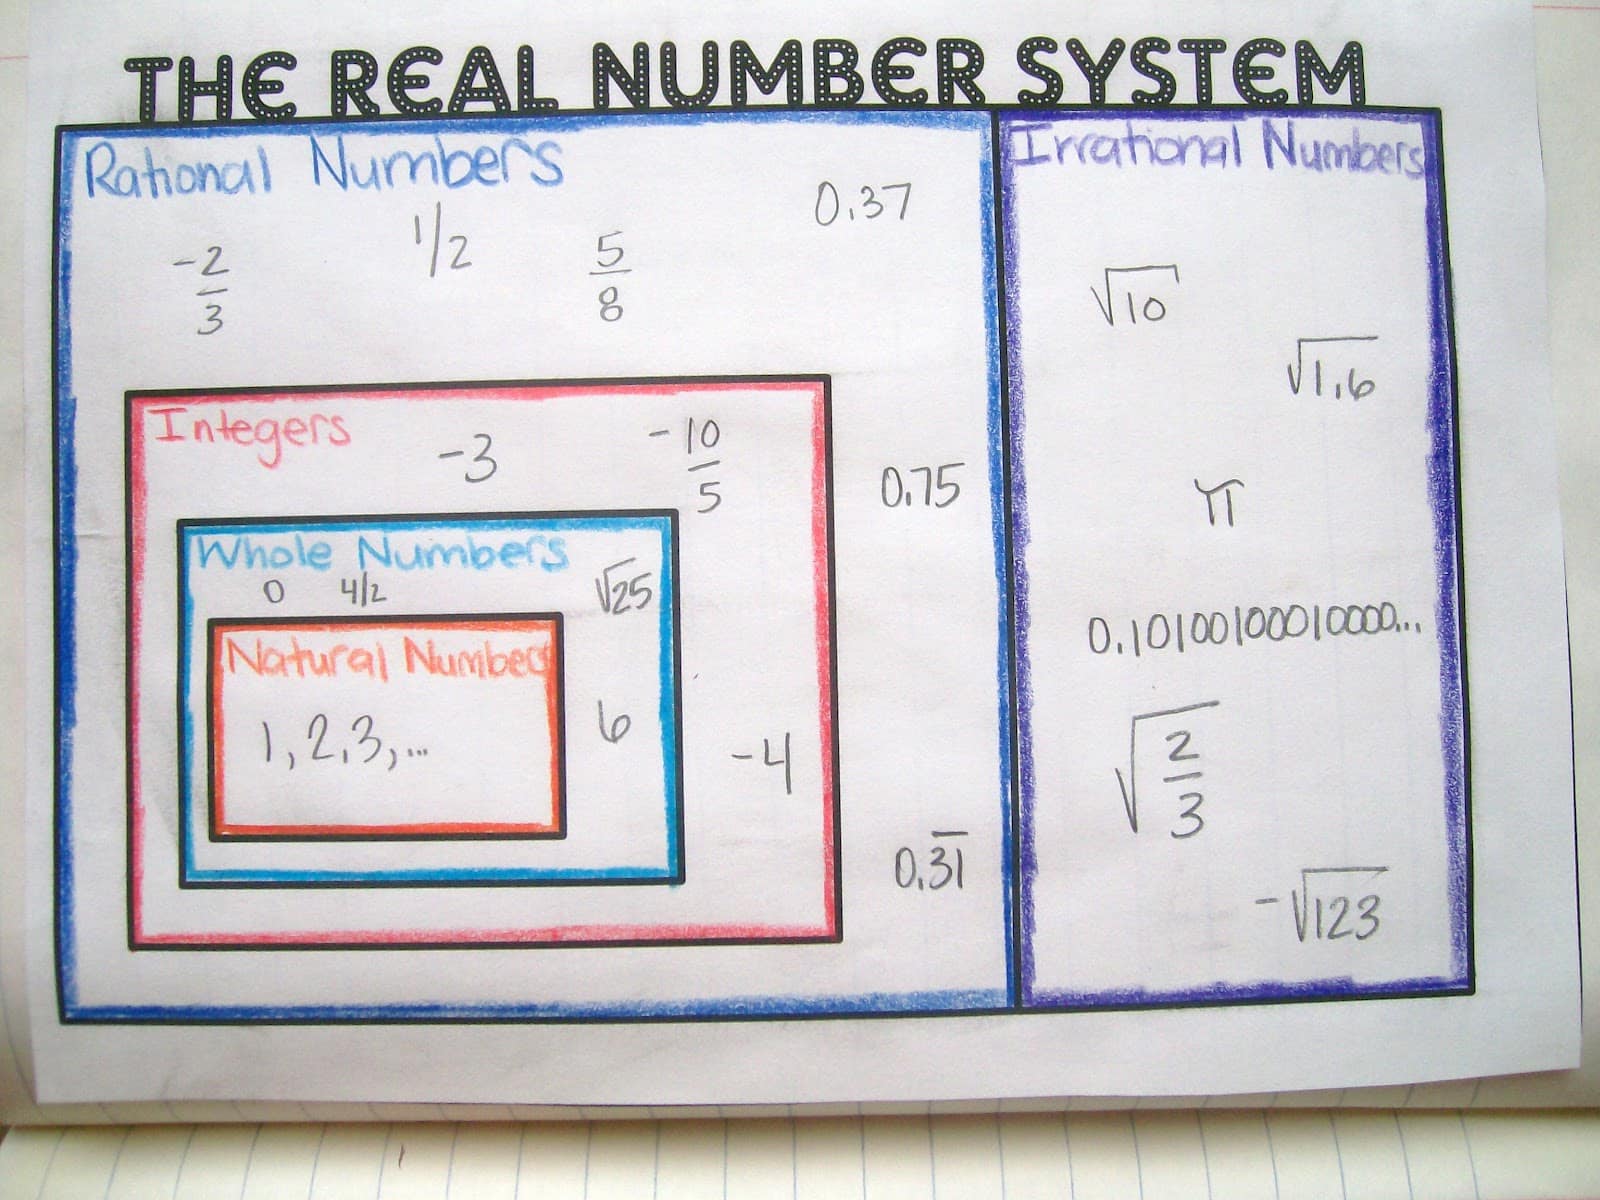 THE REAL NUMBER SYSTEM
Rational Numbers
-2/3
1/2
5/8
0.37
Integers
-3
-10/5
0.75
Whole Numbers
0 4/2 √25
Natural Numbers
1, 2, 3, ...
6
-4
0.3̅1̅
Irrational Numbers
√10
√1.6
π
0.10100100010000...
√2/3
-√123